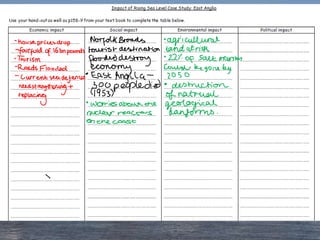 Impact of Rising Sea Level Case Study: East Anglia
Use your hand-out as well as p158-9 from your text book to complete the table below.
Economic impact
Social impact
Environmental impact
Political impact
- house prices drop
- Tourism
- Roads Flooded
- Current sea defense
need strengthening +
replacing
Norfolk Broads
tourist destination
flooded/destroy
Economy
• East Anglia -
300 people died
(1953)
• worries about the
nuclear reactors
on the coast
- agricultural
land at risk
- 22% of salt marshes
could be gone by
2050
• destruction
of natrual
geological
landforms